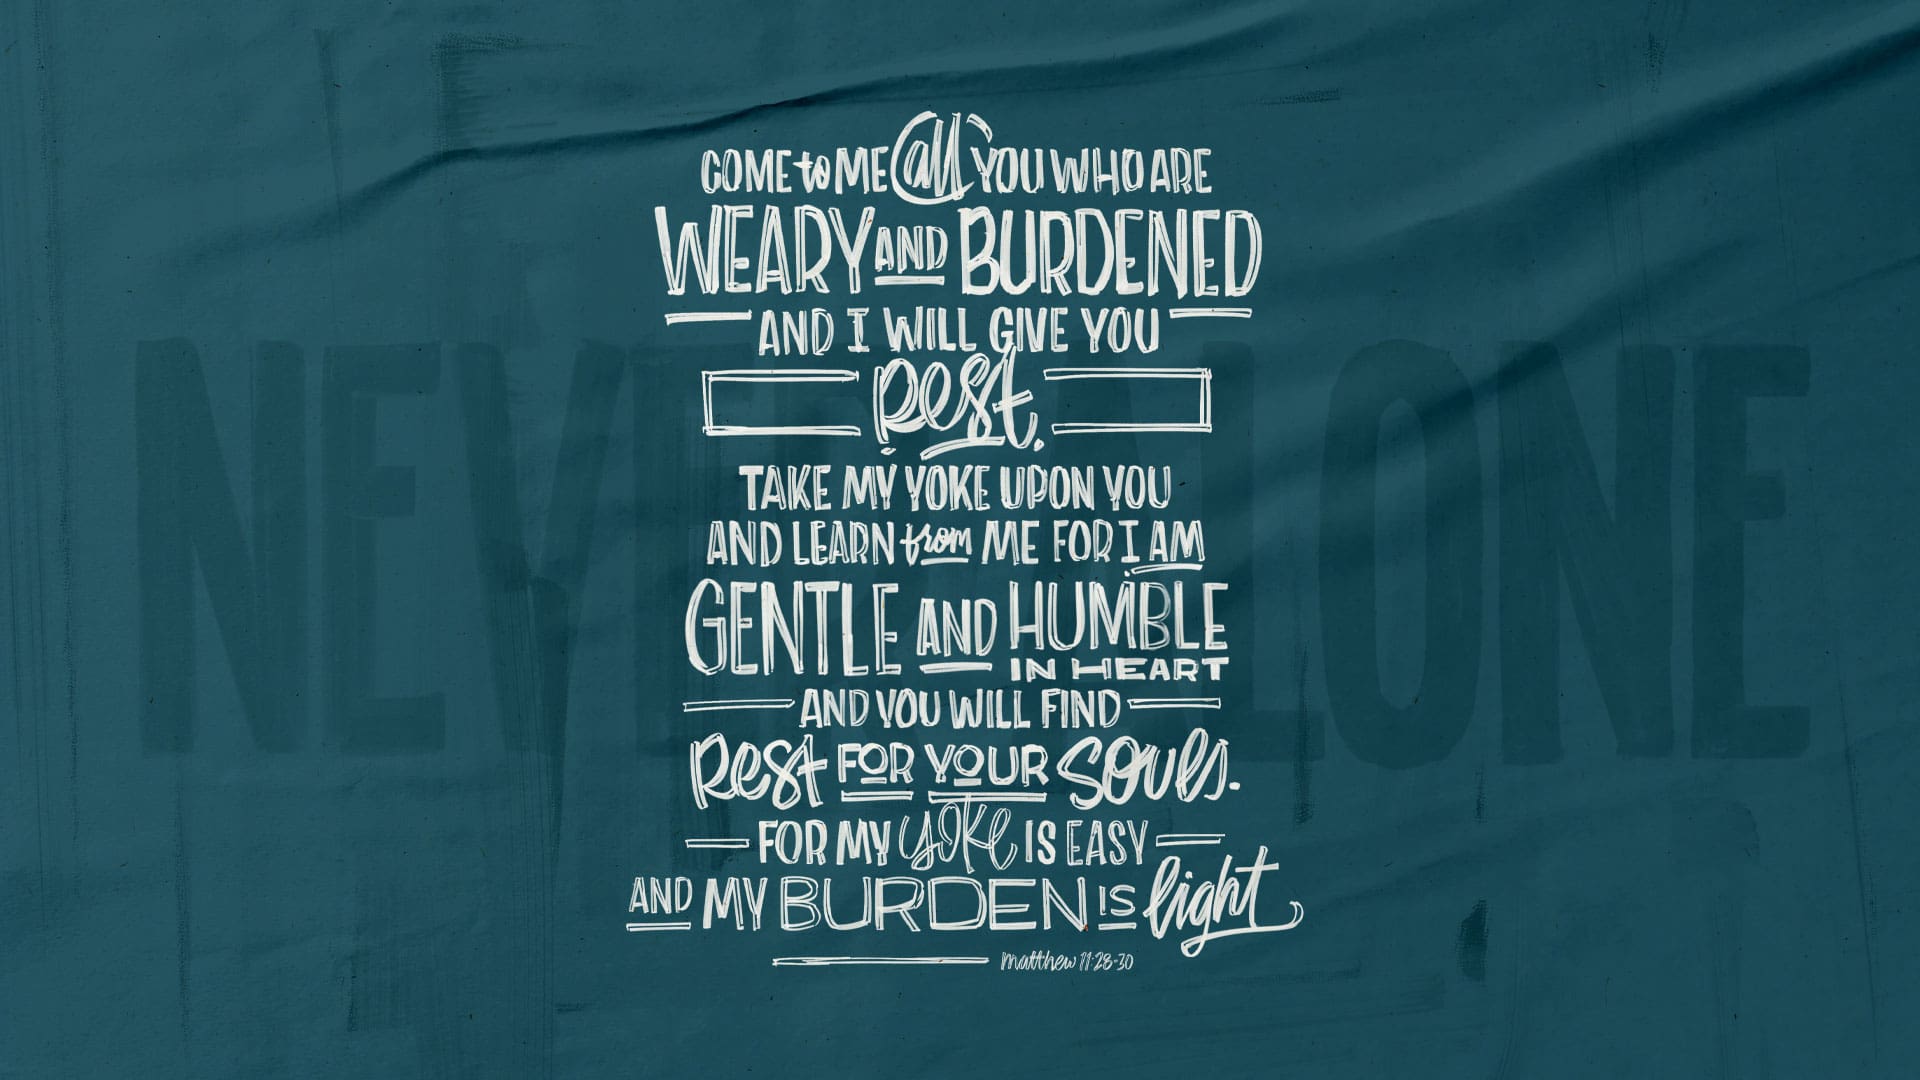 COME to ME all YOU WHO ARE
WEARY AND BURDENED
AND I WILL GIVE YOU
Rest.
TAKE MY YOKE UPON YOU
AND LEARN from ME FOR I AM
GENTLE AND HUMBLE
IN HEART
AND YOU WILL FIND
Rest FOR YOUR SOULS.
FOR MY YOKE IS EASY
AND MY BURDEN IS light
Matthew 11:28-30
NEVER ALONE